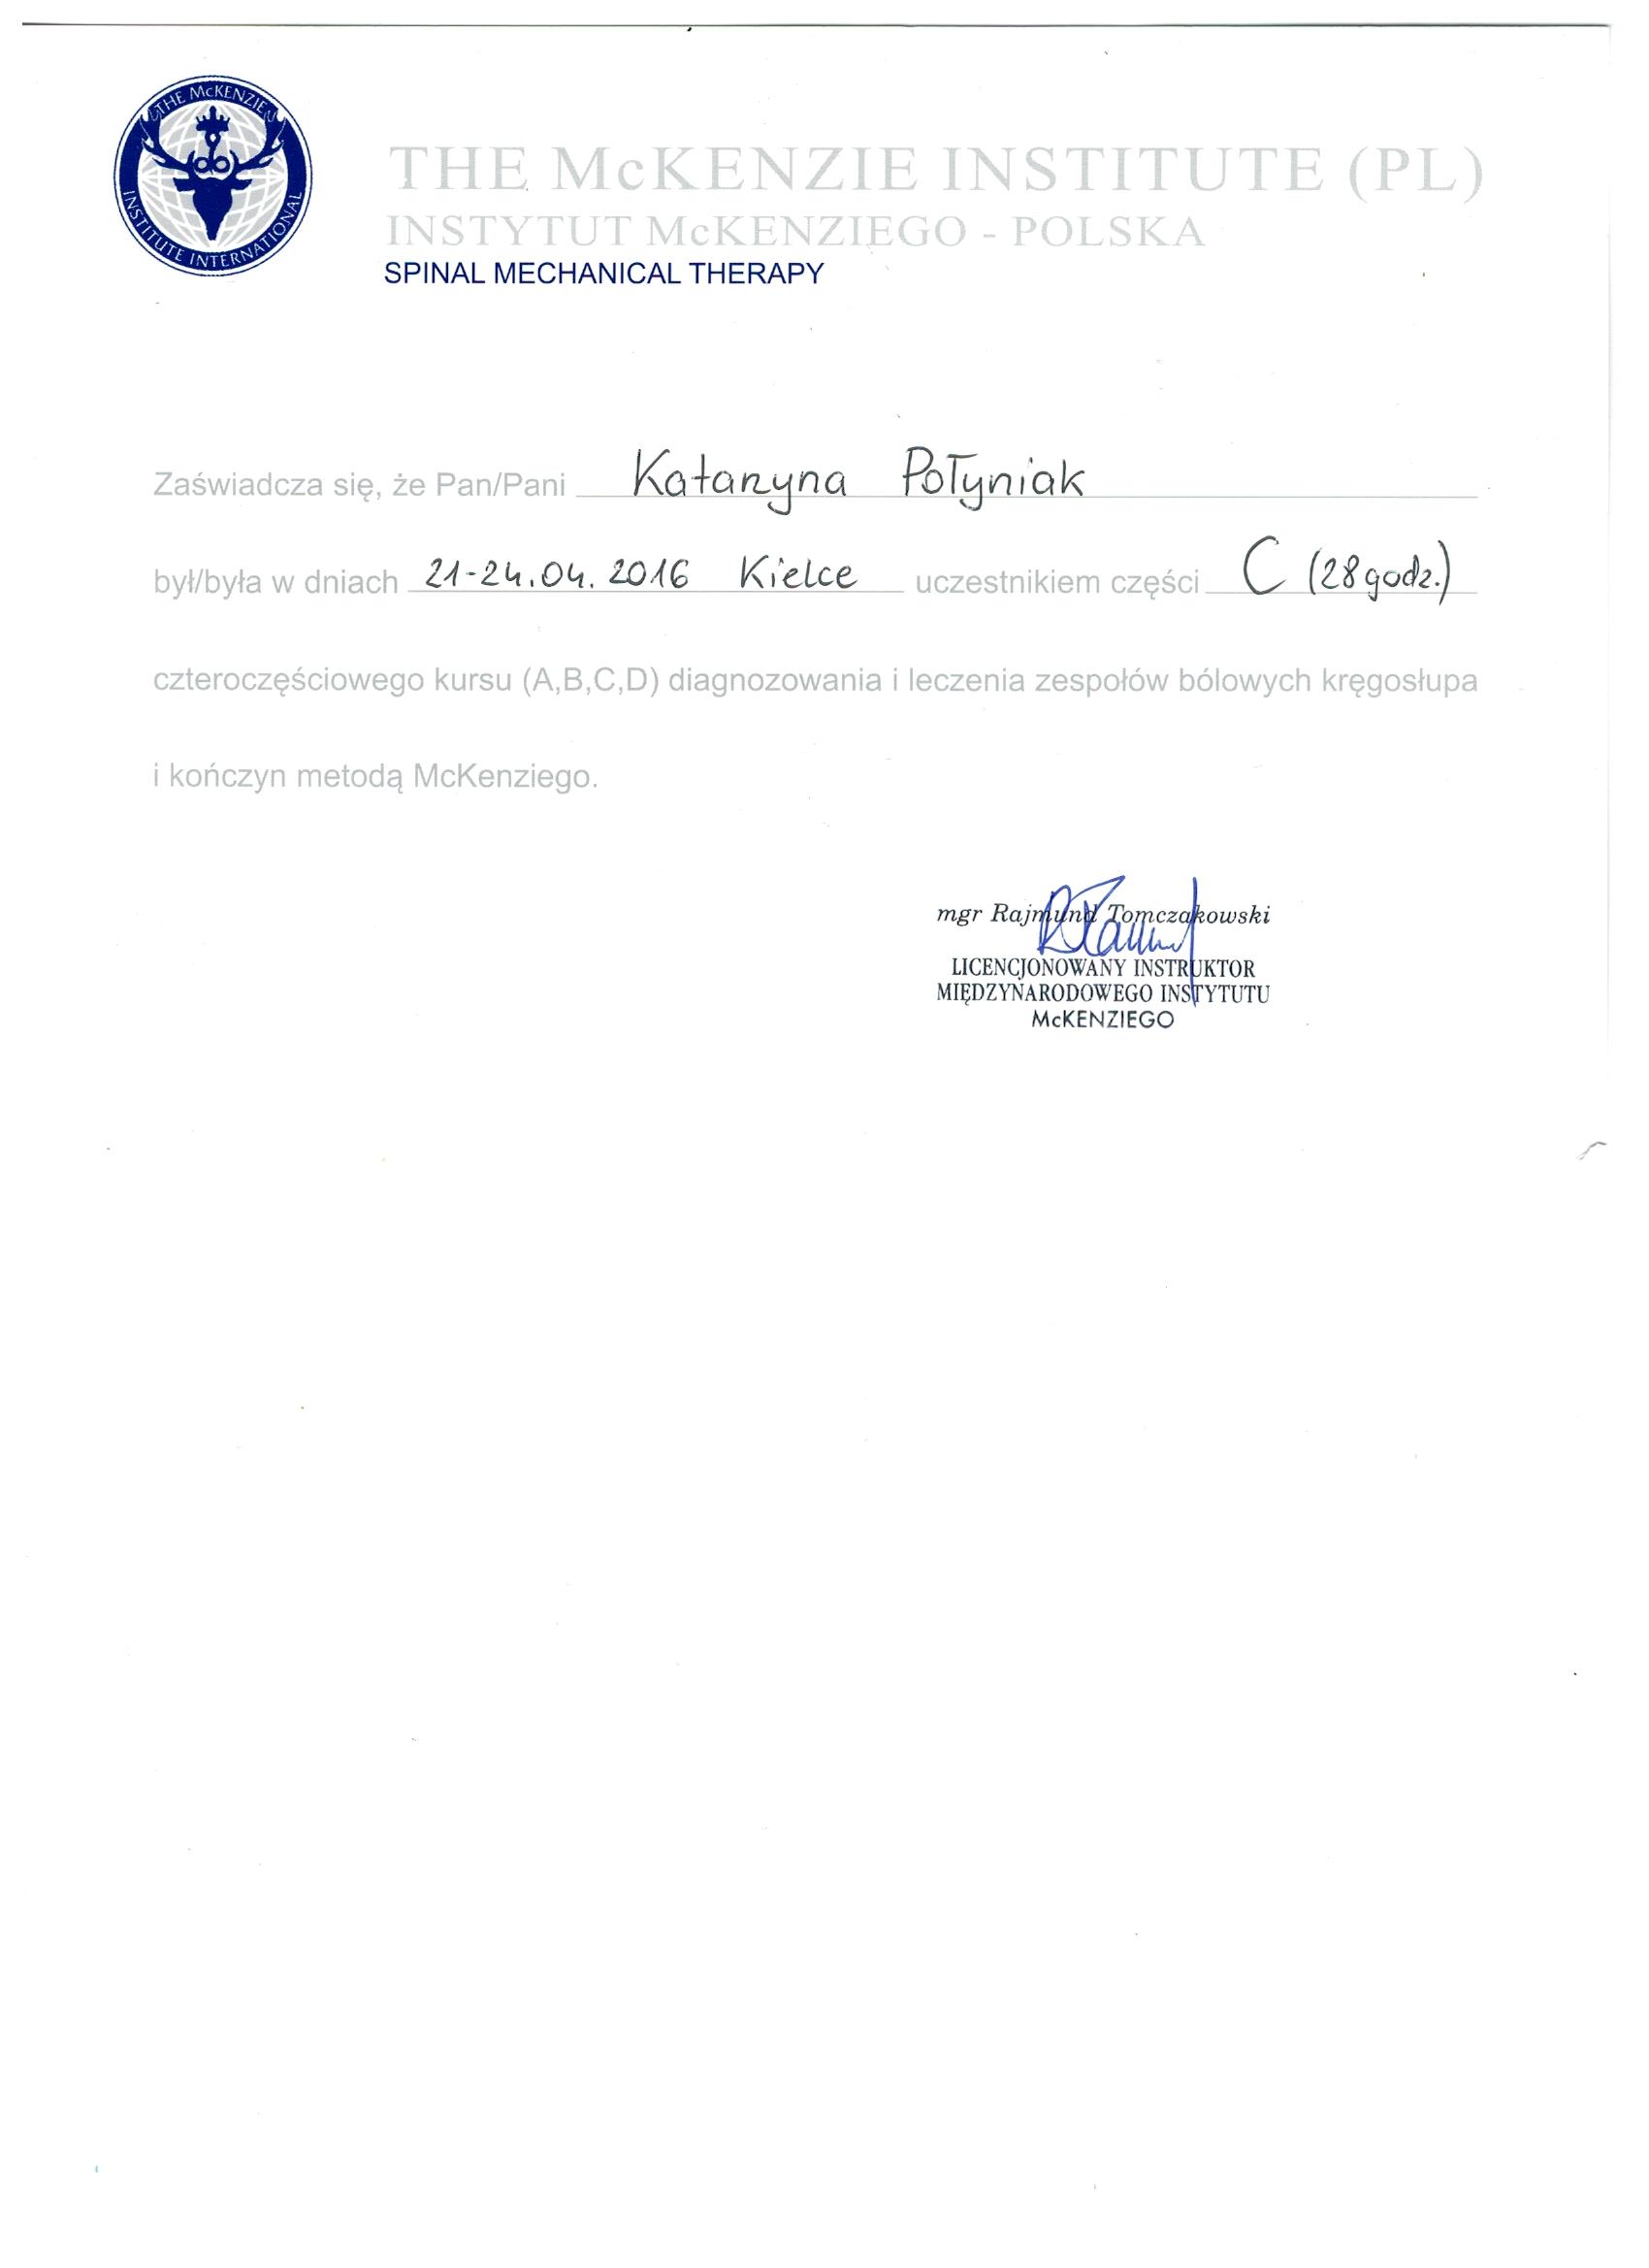 THE McKENZIE
INSTITUTE INTERNATIONAL
THE McKENZIE INSTITUTE (PL)
INSTYTUT McKENZIEGO - POLSKA
SPINAL MECHANICAL THERAPY
Zaświadcza się, że Pan/Pani Katarzyna Połyniak
był/była w dniach 21-24.04.2016 Kielce uczestnikiem części C (28 godz.)
czteroczęściowego kursu (A,B,C,D) diagnozowania i leczenia zespołów bólowych kręgosłupa
i kończyn metodą McKenziego.
mgr Rajmund Tomczakowski
LICENCJONOWANY INSTRUKTOR
MIĘDZYNARODOWEGO INSTYTUTU
McKENZIEGO